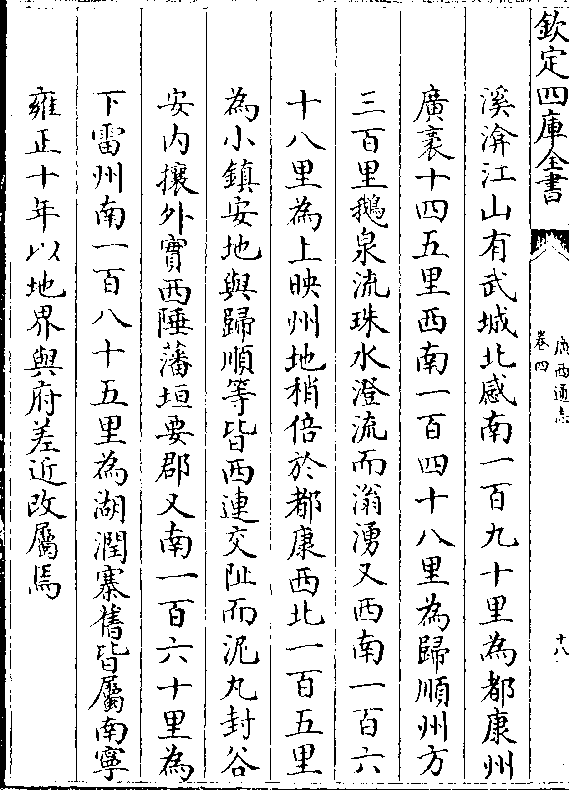 欽定四庫全書
廣西通志
卷四
十八
溪渰江山有武城北感南一百九十里為都康州
廣袤十四五里西南一百四十八里為歸順州方
三百里鵝泉流珠水澄流而滃湧又西南一百六
十八里為上映州地稍倍於都康西北一百五里
為小鎮安地與歸順等皆西連交阯而泥丸封谷
安内攘外實西陲藩垣要郡又南一百六十里為
下雷州南一百八十五里為湖潤寨舊皆屬南寧
雍正十年以地界與府差近改屬焉